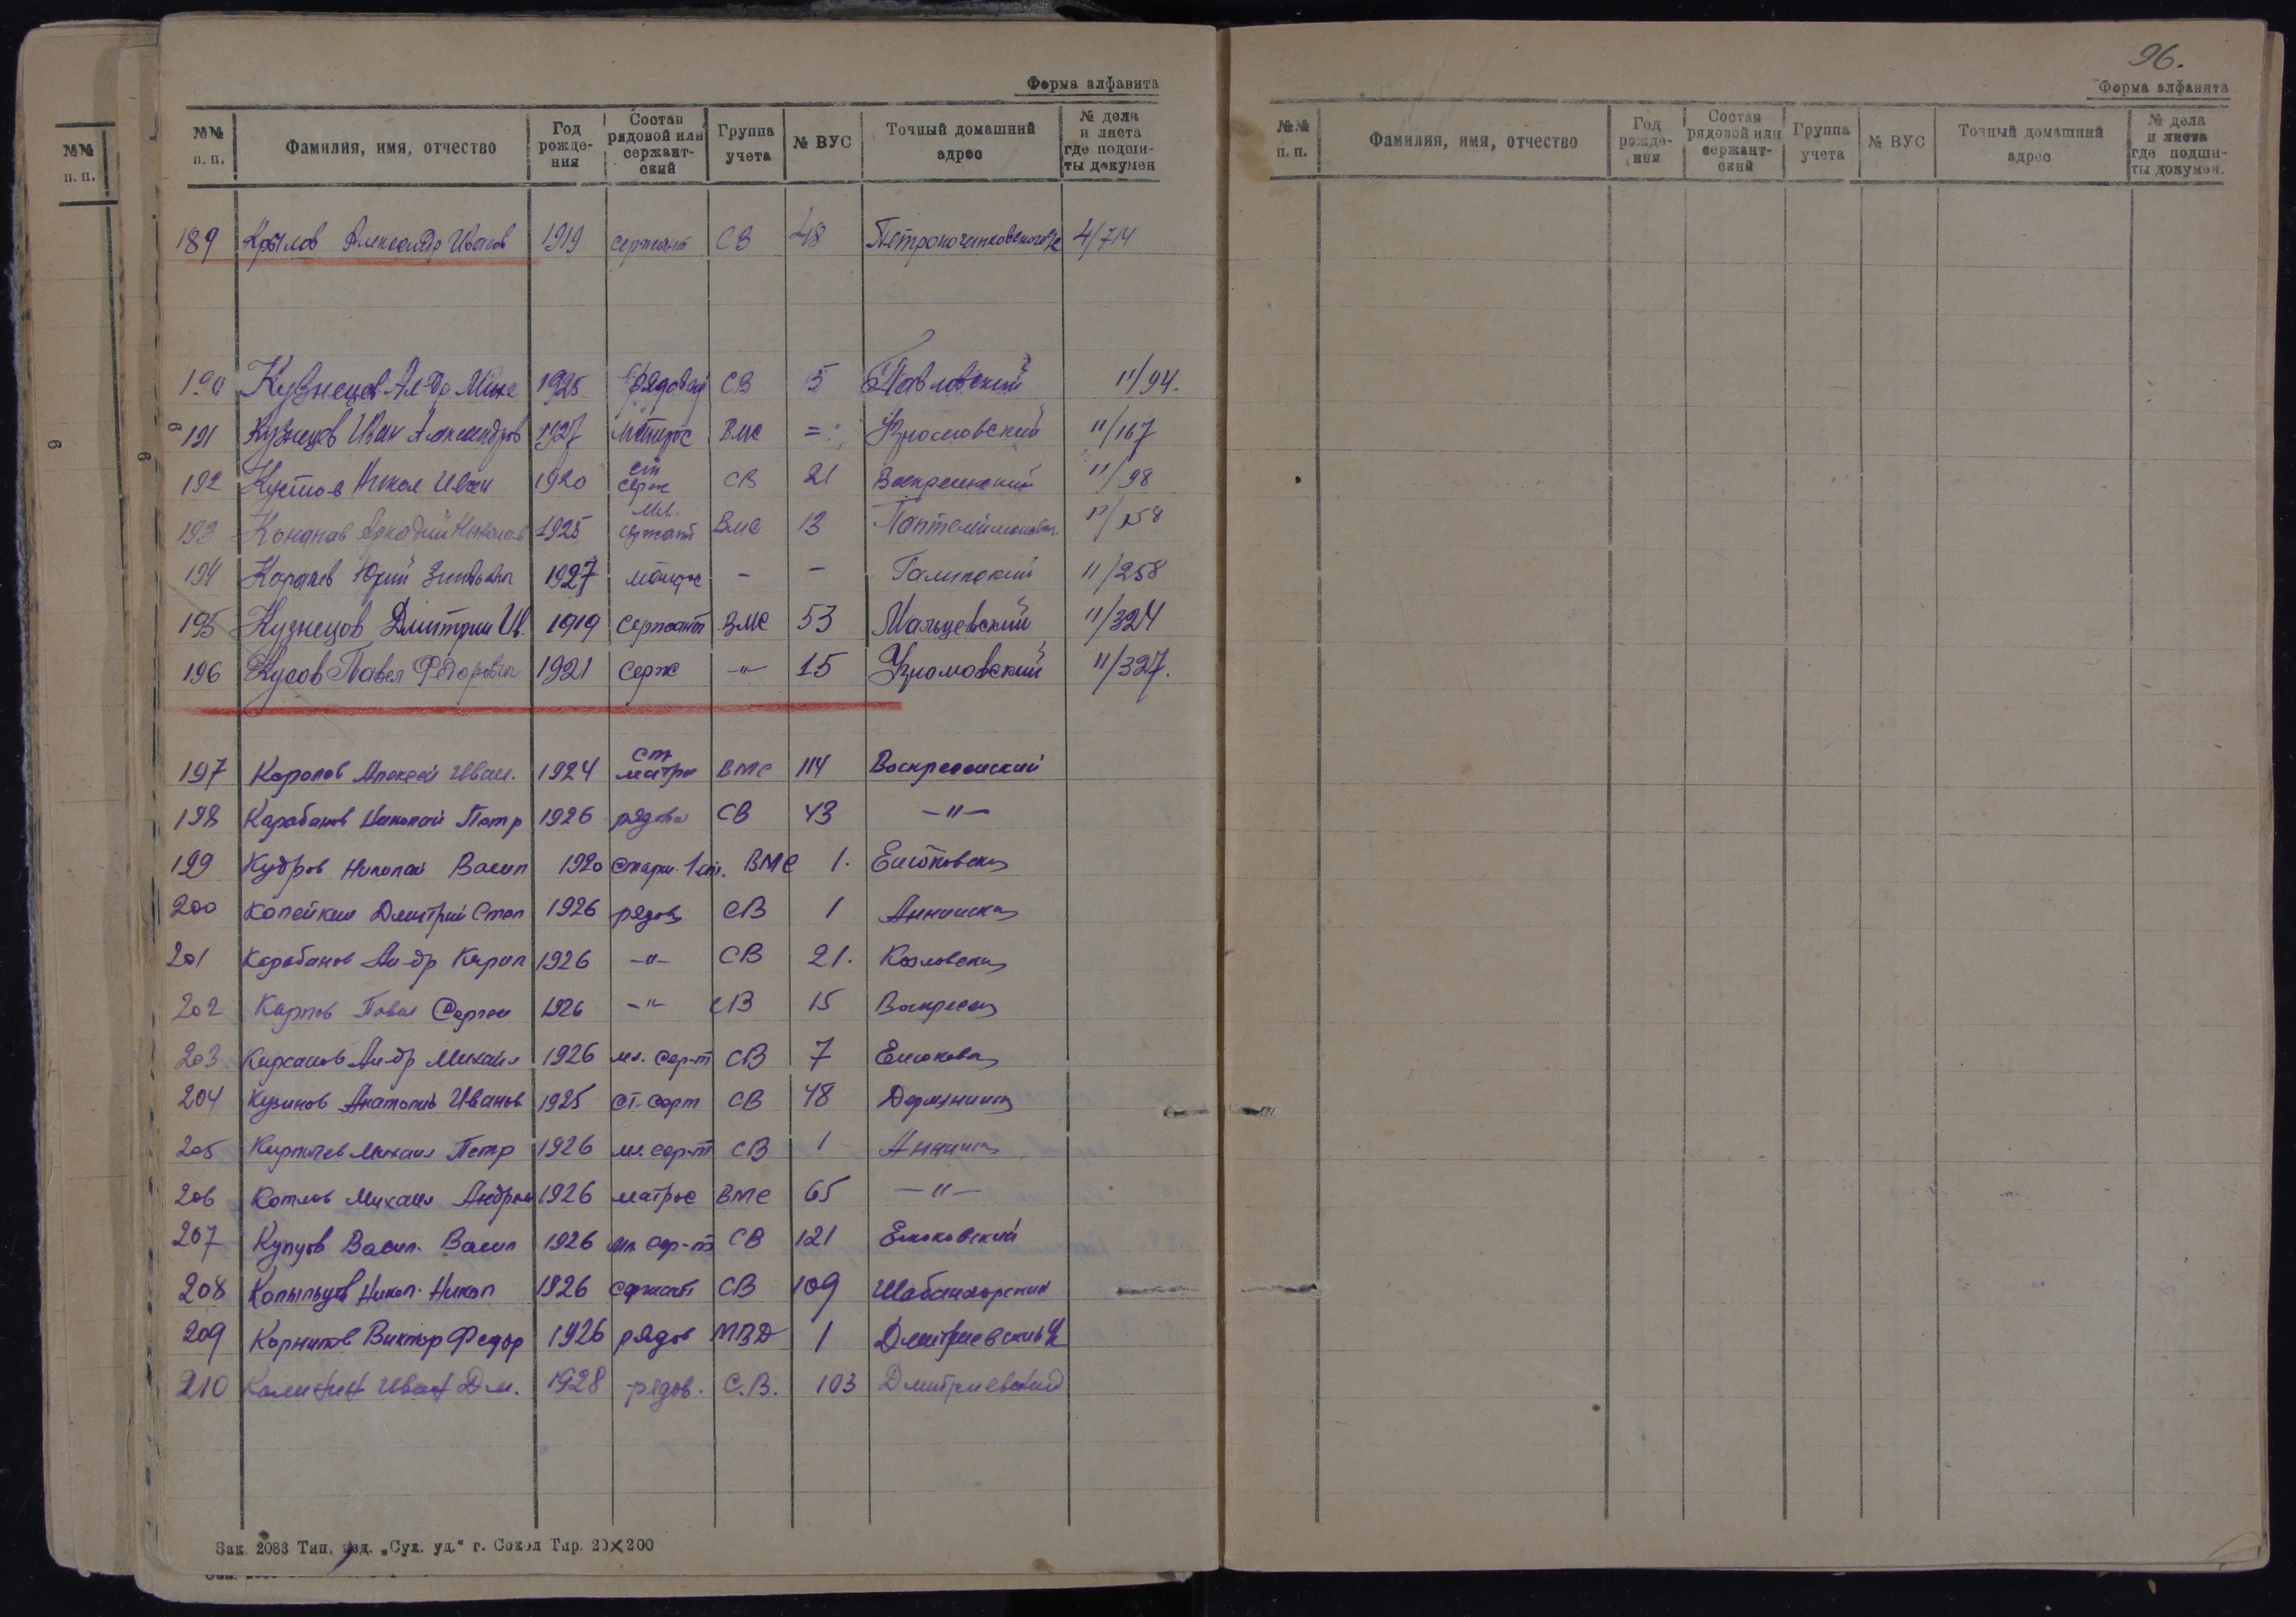 №№
п. п.
Форма алфавита
№№ п. п. Фамилия, имя, отчество Год рожде- ния Состав рядовой или сержант- ский Группа учета № ВУС Точный домашний адрес № дела и листа где подши- ты докумен
189 Крылов Александр Иванов 1919 сержант СВ 48 4/714
190 Кузнецов Ал-др Миха 1925 рядовой СВ 5 Павловский 11/94.
191 Кузнецов Иван Александров 1927 Матрос ВМС = Уломовский 11/167
192 Кустов Никол Иван 1920 ст серж СВ 21 Воскресенский 11/98
193 Конанов Аркадий Николаев 1925 мл. сержант ВМС 13 11/158
194 Юрий 1927 матрос - - 11/258
195 Кузнецов Дмитрий Ив. 1919 Сержант ВМС 53 Мальцевский 11/324
196 Кусов Павел Федорович 1921 серж -"- 15 Уломовский 11/327.
197 Королов Алексей Иван. 1924 ст матро ВМС 114 Воскресенский
198 Карабанов Николай Петр 1926 рядово СВ 43 -"-
199 Кудров Николай Васил 1920 старш. 1 ст. ВМС 1.
200 Копейкин Дмитрий Степ 1926 рядов СВ 1 Аннинск
201 Карабанов Ал-др Кирил 1926 -"- СВ 21. Козловск
202 Карпов Павел Сергеи 1926 -"- СВ 15 Воскресен
203 Кирсанов Ал-др Михаил 1926 мл. сер-т СВ 7
204 Кузинов Анатолий Иванов 1925 ст. серт СВ 48
205 Кирпичев Михаил Петр 1926 мл. сер-т СВ 1 Аннинск
206 Котлов Михаил Андрее 1926 матрос ВМС 65 -"-
207 Купцов Васил. Васил 1926 мл. сер-т СВ 121
208 Копыльцов Никол. Никол 1926 сержант СВ 109 Шабаногорский
209 Корнилов Виктор Федор 1926 рядов МВД 1 Дмитриевский
210 Калинин Иван Дм. 1928 рядов. С.В. 103 Дмитриевский
Зак. 2083 Тип. изд. „Сух. уд.“ г. Сокол Тир. 20×200
96.
Форма алфавита
№№ п. п. Фамилия, имя, отчество Год рожде- ния Состав рядовой или сержант- ский Группа учета № ВУС Точный домашний адрес № дела и листа где подши- ты докумен.